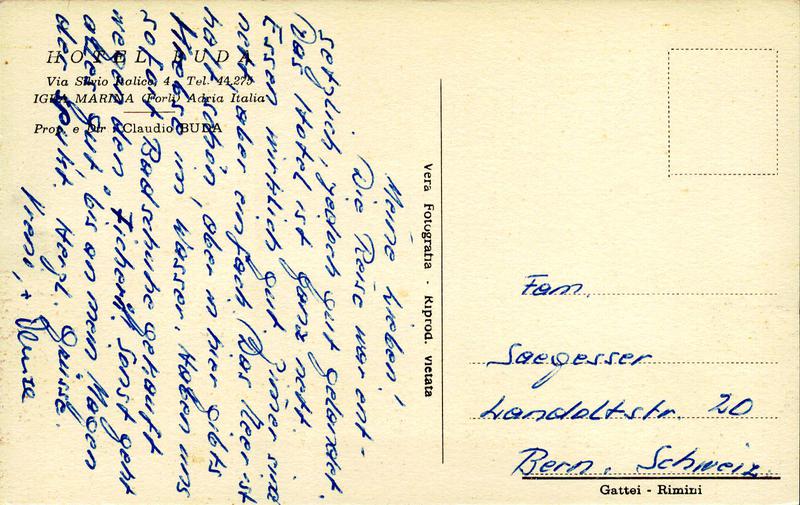 HOTEL BUDA
Via Silvio Italico, 4 - Tel. 44.275
IGEA MARINA (Forlì) Adria Italia
Prop. e Dir.: Claudio BUDA
Meine Lieben!
Die Reise war ent-
setzlich, jedoch gut gelandet.
Das Hotel ist ganz nett.
Essen wirklich gut, Zimer sind
nett, aber einfach. Das Meer ist
halt schön, aber hier gibts
Krebse im Wasser. Haben uns
sofort Badschuhe gekauft
wegen den Sonst geht
alles gut bis an mein Magen
der spukt. Herzl. Grüsse
Vreni, +
Vera Fotografia - Riprod. vietata
Fam.
Saegesser
Landoltstr. 20
Bern, Schweiz
Gattei - Rimini